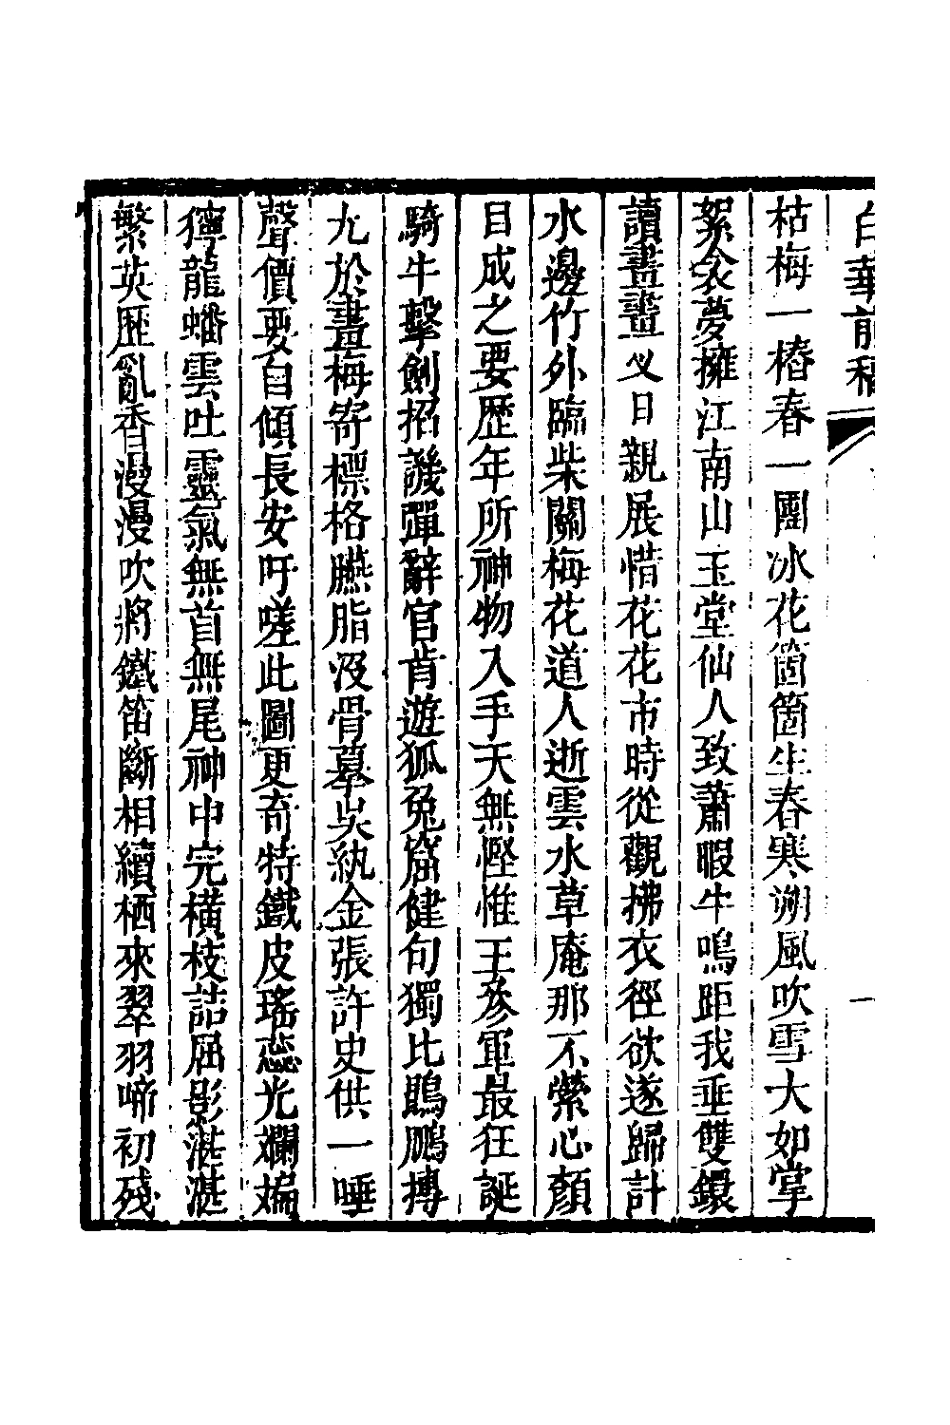 白華前稿
枯梅一樁春一團冰花箇箇生春寒朔風吹雪大如掌
絮衾夢擁江南山玉堂仙人致蕭暇牛鳴距我垂雙鐶
讀畫畫义日親展惜花花市時從觀拂衣徑欲遂歸計
水邊竹外臨柴關梅花道人逝雲水草庵那不縈心顏
目成之要歷年所神物入手天無慳惟王參軍最狂誕
騎牛擊劍招譏彈辭官肯遊狐兔窟健句獨比鵾鵬摶
尤於畫梅寄標格臙脂沒骨摹吳紈金張許史供一唾
聲價要自傾長安吁嗟此圖更奇特鐵皮瑤蕊光斕斒
獰龍蟠雲吐靈氣無首無尾神中完橫枝詰屈影湛湛
繁英歷亂香漫漫吹將鐵笛斷相續栖來翠羽啼初殘